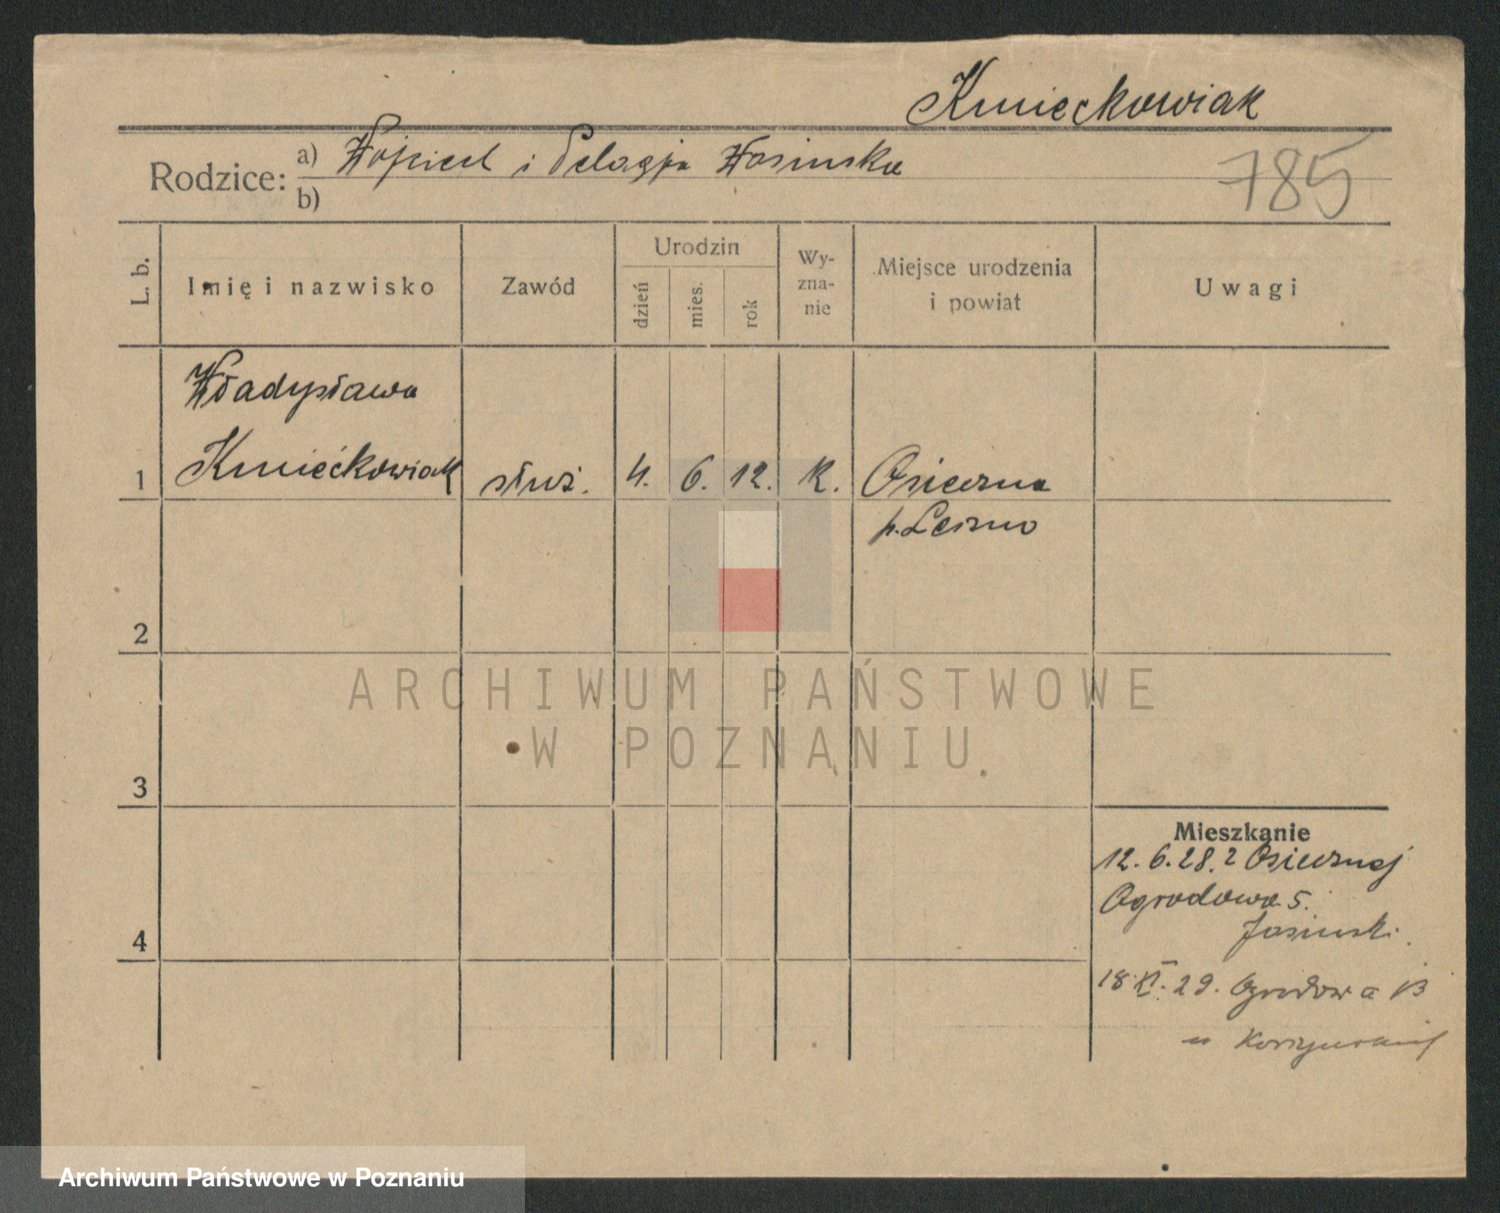 Kmiećkowiak
Rodzice: a) Wojciech i Pelagja Wosinska
b)
785
L. b.
Imię i nazwisko
Zawód
Urodzin
dzień
mies.
rok
Wy-
zna-
nie
Miejsce urodzenia
i powiat
Uwagi
Władysława
1 Kmiećkowiak służ. 4. 6. 12. K. Osieczna
p. Leszno
2
ARCHIWUM PAŃSTWOWE
W POZNANIU
3
Mieszkanie
12.6.28. z Osiecznej
Ogrodowa 5.
Jasiński.
4
18.XI.29. Ogrodowa 13
u
Archiwum Państwowe w Poznaniu